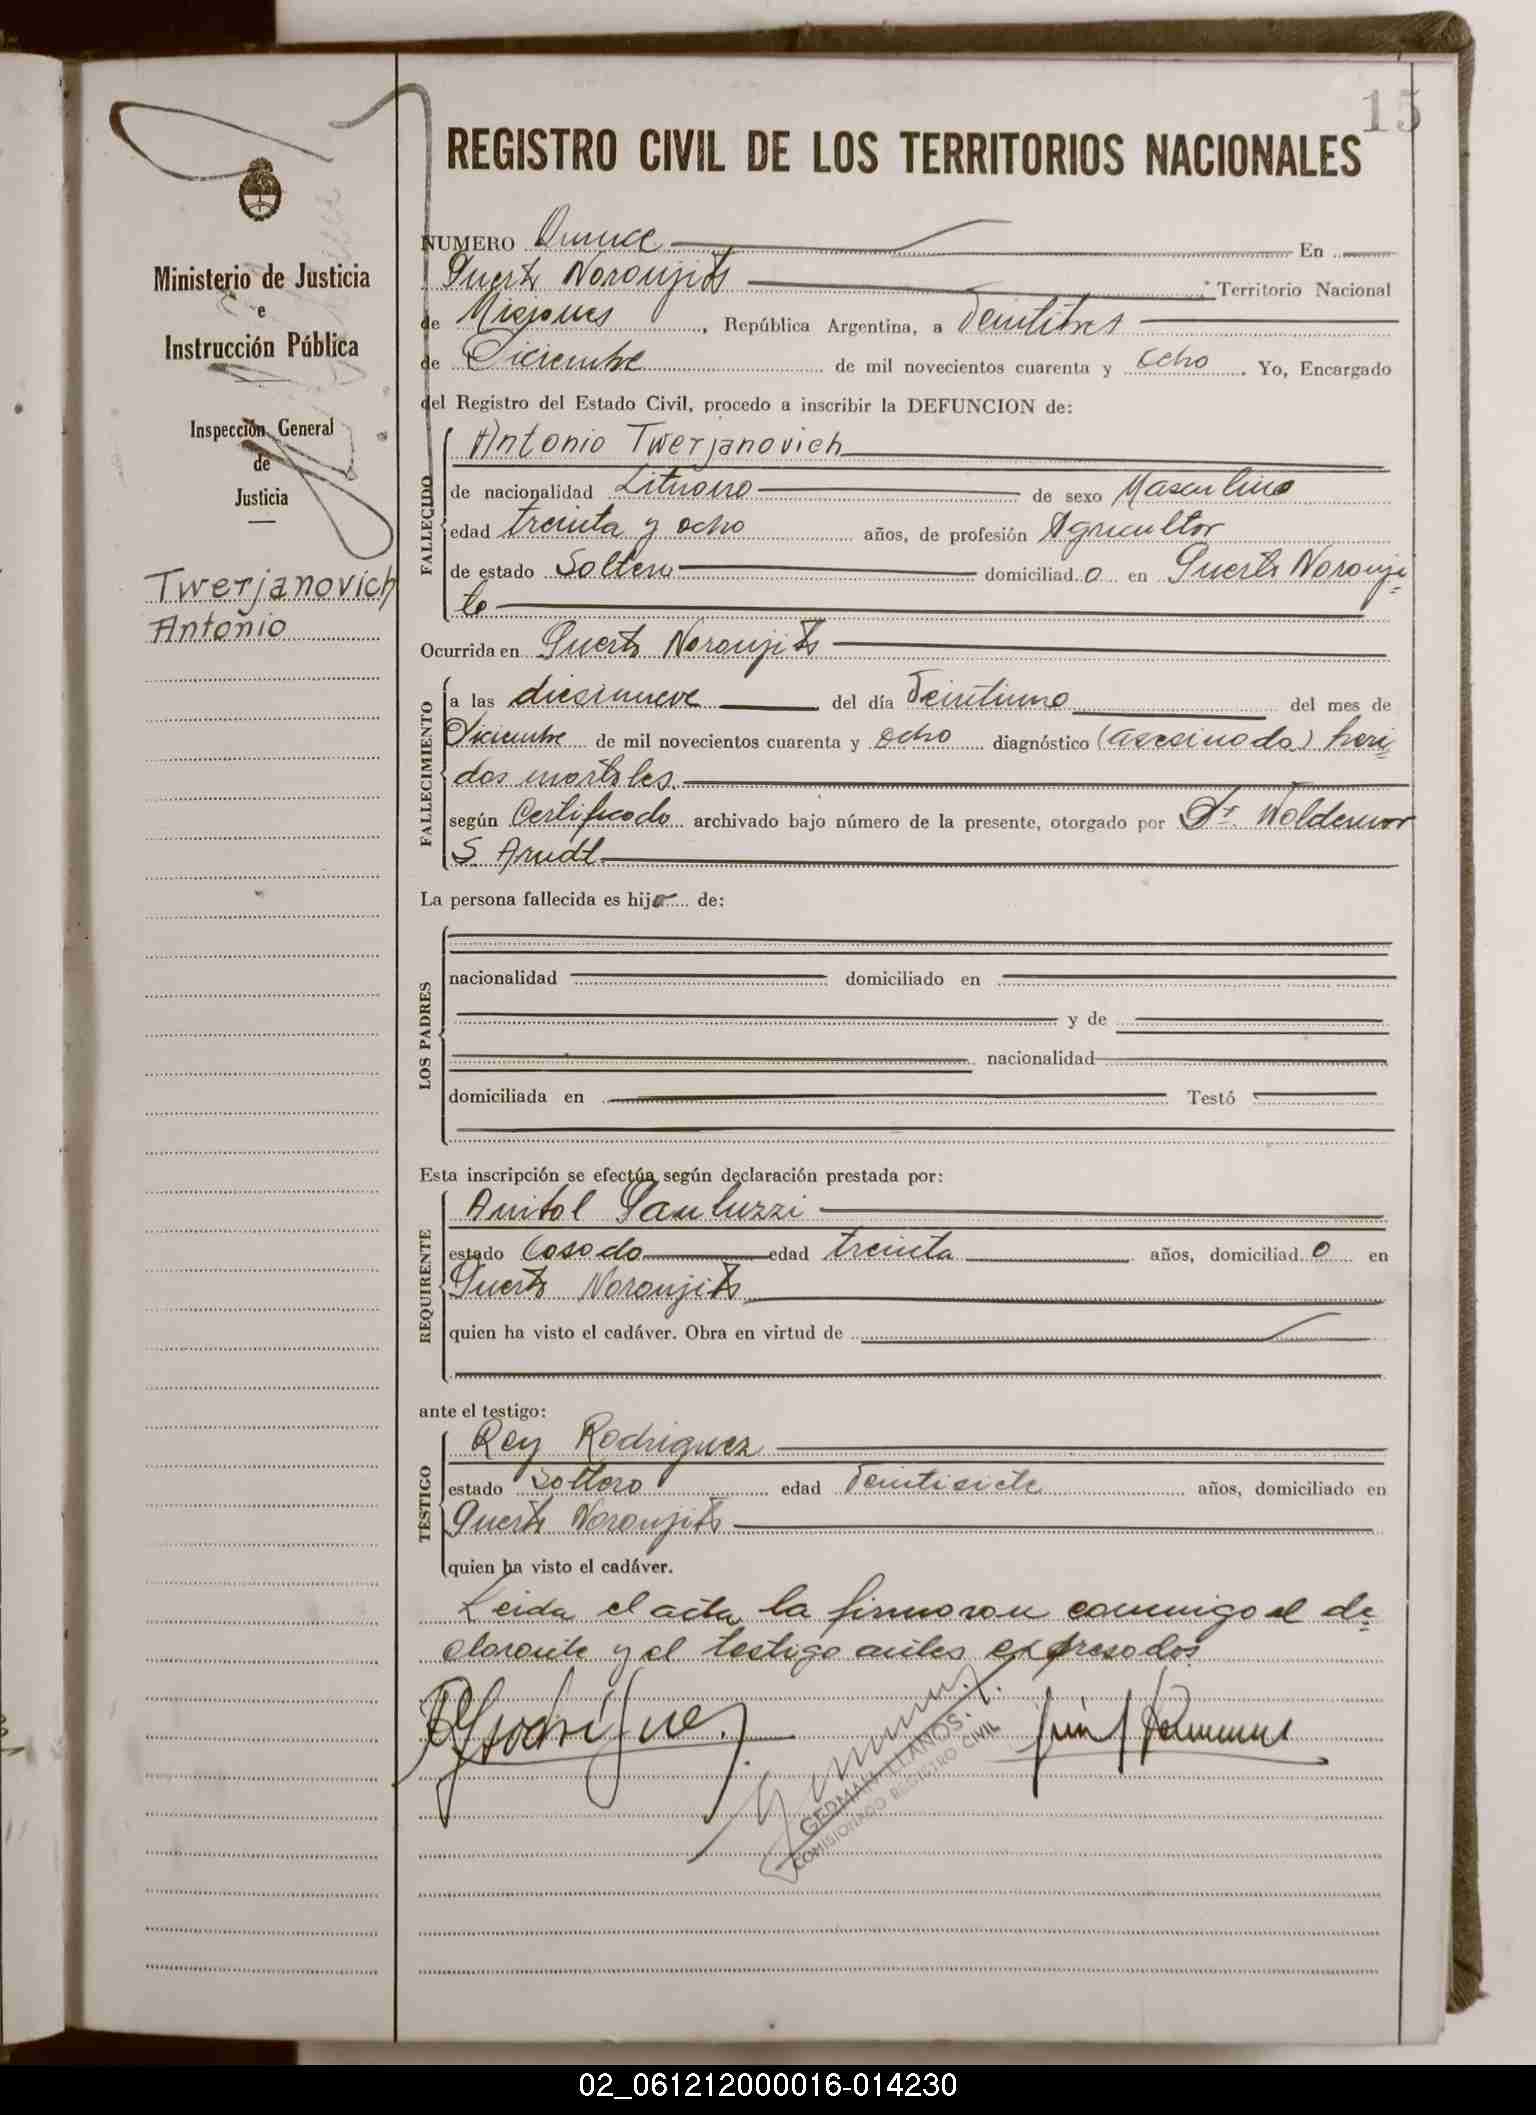 15
REGISTRO CIVIL DE LOS TERRITORIOS NACIONALES
Ministerio de Justicia
e
Instrucción Pública
Inspección General
de
Justicia
Twerjanovich
Antonio
NUMERO Quince En
Puerto Naranjito ; Territorio Nacional
de Misiones , República Argentina, a Veintitres
de Diciembre de mil novecientos cuarenta y ocho . Yo, Encargado
del Registro del Estado Civil, procedo a inscribir la DEFUNCION de:
FALLECIDO
Antonio Twerjanovich
de nacionalidad Lituano de sexo Masculino
edad treinta y ocho años, de profesión Agricultor
de estado Soltero domiciliad o en Puerto Naranji=
to
Ocurrida en Puerto Naranjito
FALLECIMIENTO
a las diesinueve del día Veintiuno del mes de
Diciembre de mil novecientos cuarenta y ocho diagnóstico (asesinado) heri=
das mortales.
según Certificado archivado bajo número de la presente, otorgado por Dr. Woldemar
S. Arndt
La persona fallecida es hijo de:
LOS PADRES
nacionalidad domiciliado en
y de
nacionalidad
domiciliada en Testó
Esta inscripción se efectúa según declaración prestada por:
REQUIRENTE
estado Casado edad treinta años, domiciliad o en
Puerto Naranjito
quien ha visto el cadáver. Obra en virtud de
ante el testigo:
TESTIGO
Rey Rodriguez
estado Soltero edad Veintisiete años, domiciliado en
Puerto Naranjito
quien ha visto el cadáver.
Leida el acta la firmaron conmigo el de=
clarante y el testigo antes expresados
Rodríguez
GERMAN LLANOS
COMISIONADO REGISTRO CIVIL
02_061212000016-014230